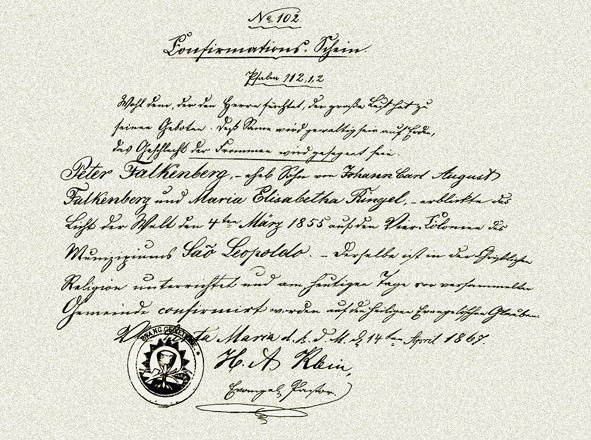 No 102.
Confirmations-Schein.
Psalm 112,1.2
Wohl dem, der den Herrn fürchtet, der große Lust hat zu
seinen Geboten. Deß Same wird gewaltig sein auf Erden,
das Geschlecht der Frommen wird gesegnet sein.
Peter Falkenberg, - ehel. Sohn von Johann Carl August
Falkenberg und Maria Elisabetha Ringel, - erblickte das
Licht der Welt den 4ten März 1855 auf den Vier Colonien des
Munizipiums São Leopoldo. - Derselbe ist in der Christlichen
Religion unterrichtet und am heutigen Tage vor versammelter
Gemeinde confirmirt worden auf den heiligen Evangelischen Glauben.
Maria d. 14ten April 1867.
H. A Klein,
Evangel. Pastor.